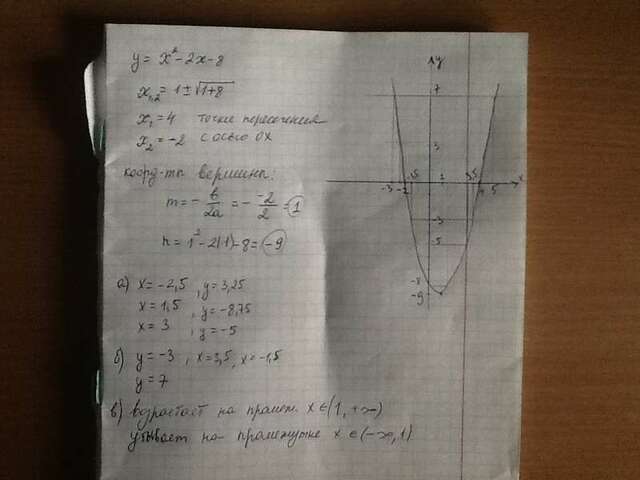 y = x² - 2x - 8
x₁,₂ = 1 ± √1+8
x₁ = 4 точки пересечения
x₂ = -2 с осью OX
коорд-ты вершины:
m = - b/2a = - -2/2 = 1
n = 1² - 2(1) - 8 = -9
а) x = -2,5 , y = 3,25
x = 1,5 , y = -8,75
x = 3 , y = -5
б) y = -3 , x = 3,5, x = -1,5
y = 7
в) возрастает на промеж. x ∈ (1, +∞)
убывает на промежутке x ∈ (-∞, 1)
y
7
3
-3 -2 1 3,5 4 5 x
-3
-5
-8
-9